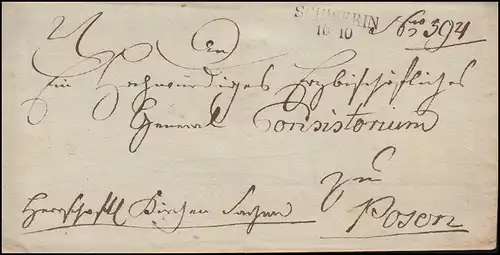 SCHWERIN
16 10
No 594
An
Ein Hochwürdiges Erzbischöfliches
General Consistorium
zu
Posen
Herrschaftl Kirchen Sachen